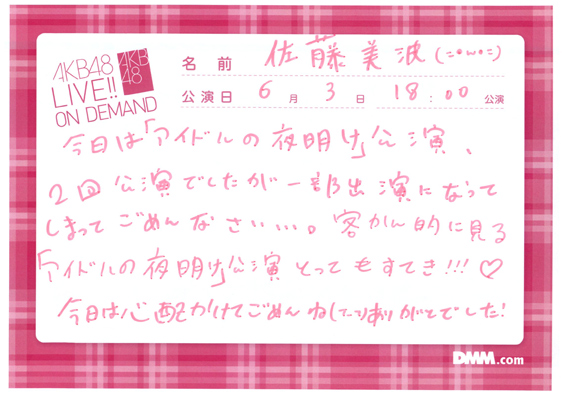 AKB48
LIVE!!
ON DEMAND
AKB
48
名前 佐藤美波(=•ω•=)
公演日 6月3日 18:00公演
今日は「アイドルの夜明け」公演、
2回公演でしたが一部出演になって
しまってごめんなさい、、、。客かん的に見る
「アイドルの夜明け」公演とってもすてき!!!♡
今日は心配かけてごめんね ありがとでした!
DMM.com